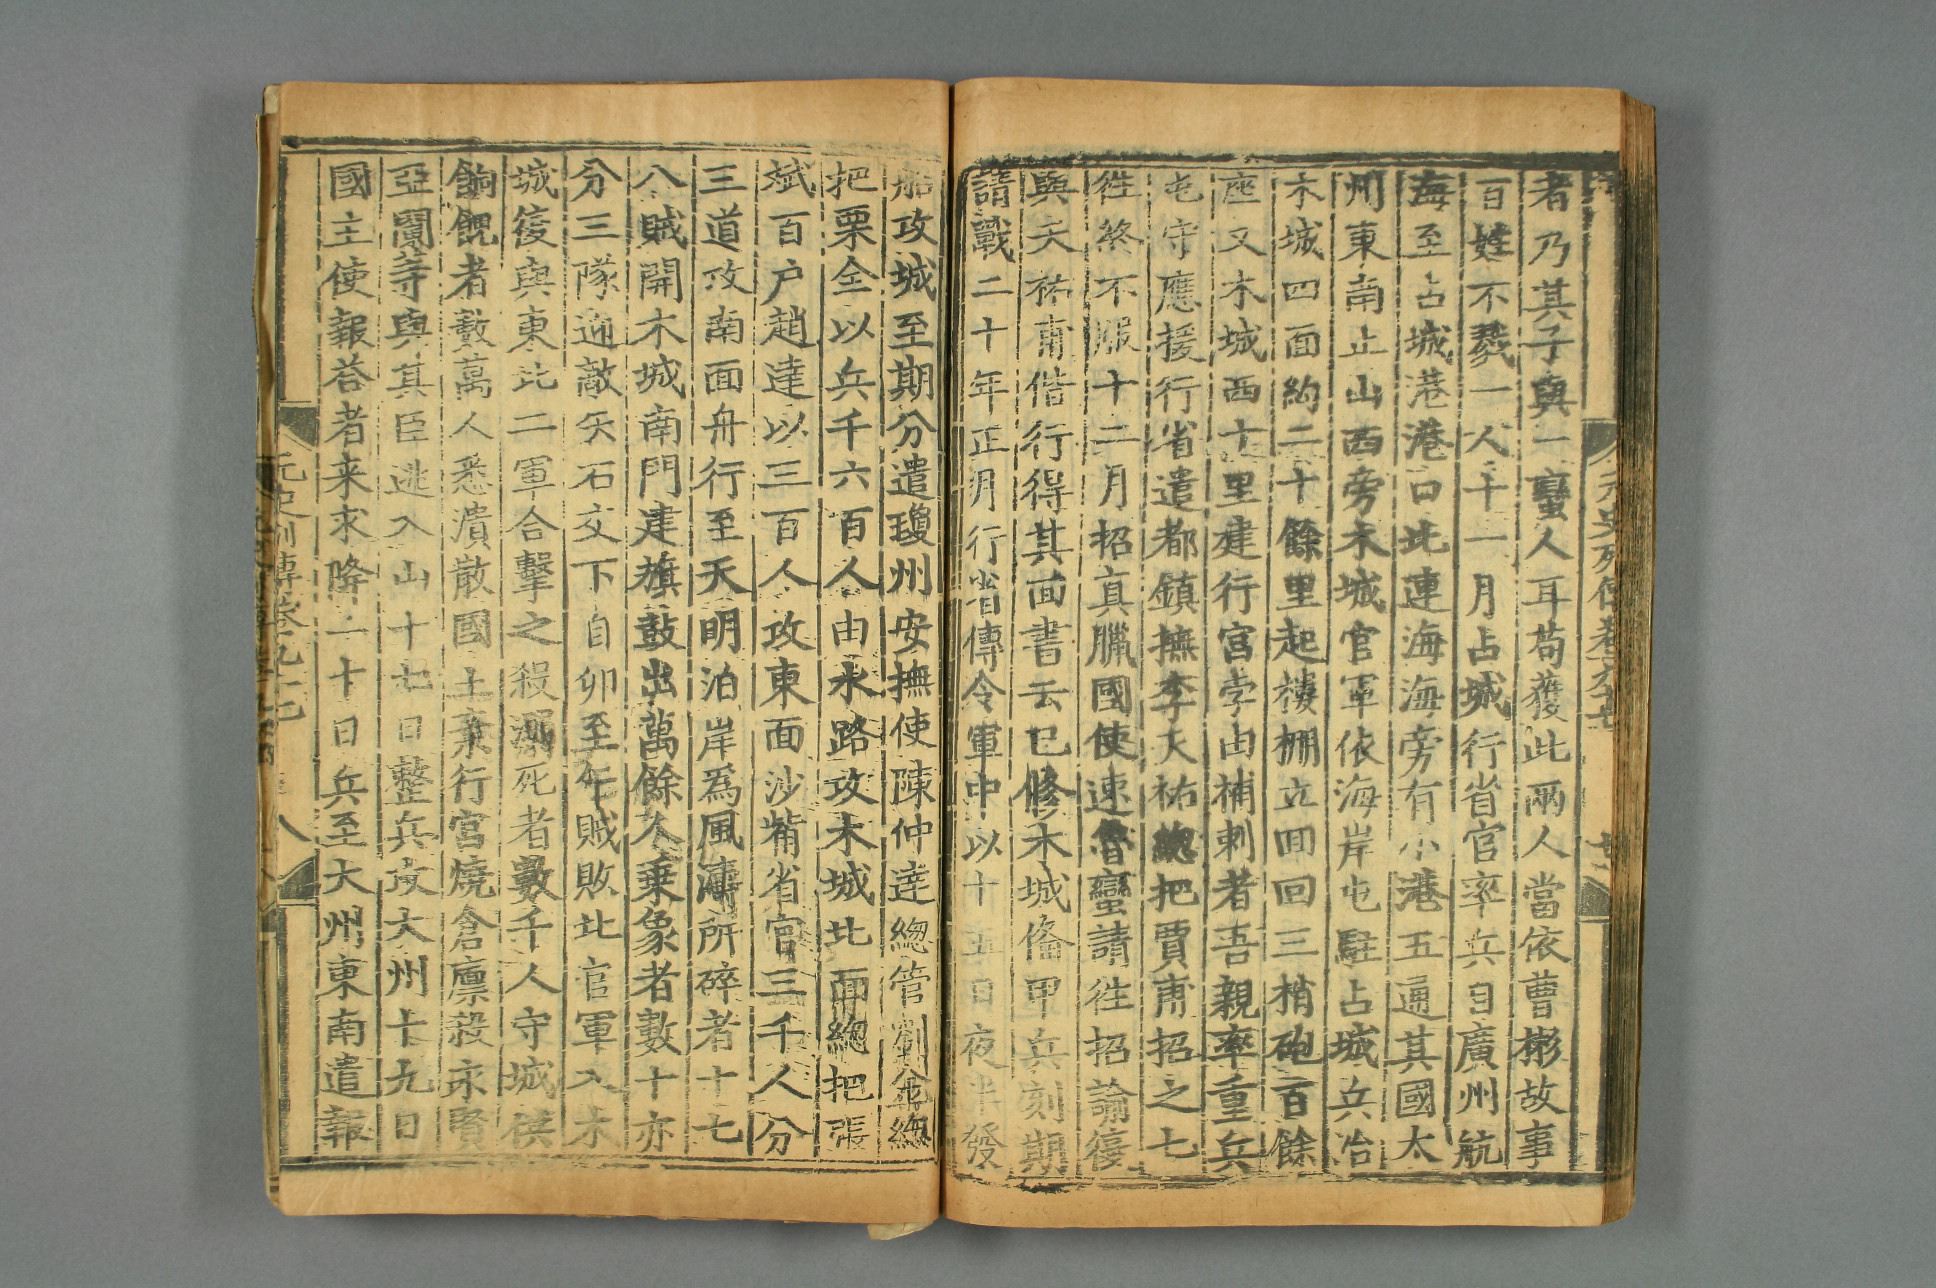 者乃其子與一蠻人耳苟獲此兩人當依曹彬故事
百姓不戮一人十一月占城行省官率兵自廣州航
海至占城港港口北連海海旁有小港五通其國大
州東南止山西旁木城官軍依海岸屯駐占城兵治
木城四面約二十餘里起樓棚立回回三梢砲百餘
座又木城西十里建行宮孛由補剌者吾親率重兵
屯守應援行省遣都鎮撫李天祐總把賈甫招之七
徃終不服十二月招真臘國使速魯蠻請徃招諭復
與天祐甫偕行得其囬書云巳修木城備甲兵刻期
請戰二十年正月行省傳令軍中以十五日夜半發
船攻城至期分遣瓊州安撫使陳仲達總管劉金總
把栗全以兵千六百人由水路攻木城北面總把張
斌百户趙達以三百人攻東面沙觜省官三千人分
三道攻南面舟行至天明泊岸爲風濤所碎者十七
八賊開木城南門建旗鼓出萬餘人乗象者數十亦
分三隊迎敵矢石交下自卯至午賊敗北官軍入木
城復與東北二軍合擊之殺溺死者數千人守城供
餉餽者數萬人悉潰散國主棄行宮燒倉廪殺永賢
亞闌等與其臣逃入山十七日整兵攻大州十九日
國主使報荅者来求降二十日兵至大州東南遣報
元史列傳卷九十七